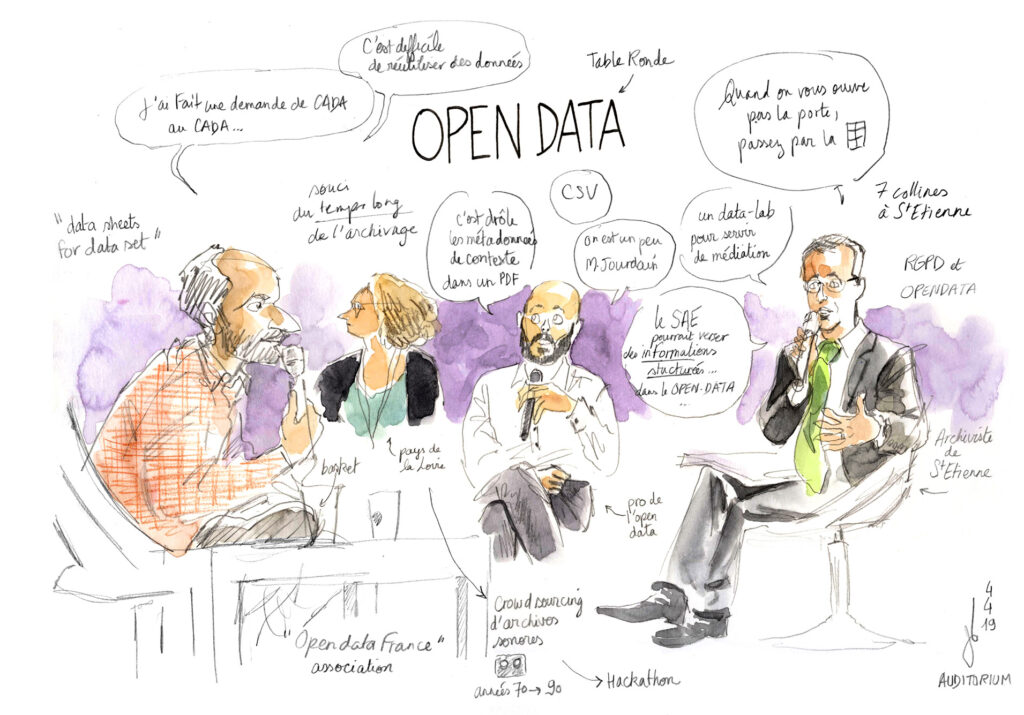 C'est difficile
de réutiliser des données
Table Ronde
J'ai fait une demande de CADA
au CADA...
OPEN DATA
Quand on vous ouvre
pas la porte,
passez par la
"data sheets
for data set"
souci
du temps long
de l'archivage
CSV
7 collines
à St Etienne
c'est drôle
les métadonnées
de contexte
dans un PDF
on est un peu
M. Jourdain
un data-lab
pour servir
de médiation
RGPD et
OPENDATA
le SAE
pourrait verser
des informations
stucturées...
dans le OPEN-DATA
...
pays de
la Loire
basket
Archiviste
de
St Etienne
pro de
l'open
data
Crowdsourcing
d'archives
sonores
années 70 → 90
Hackathon
"Open data France"
association
4
4
19
AUDITORIUM